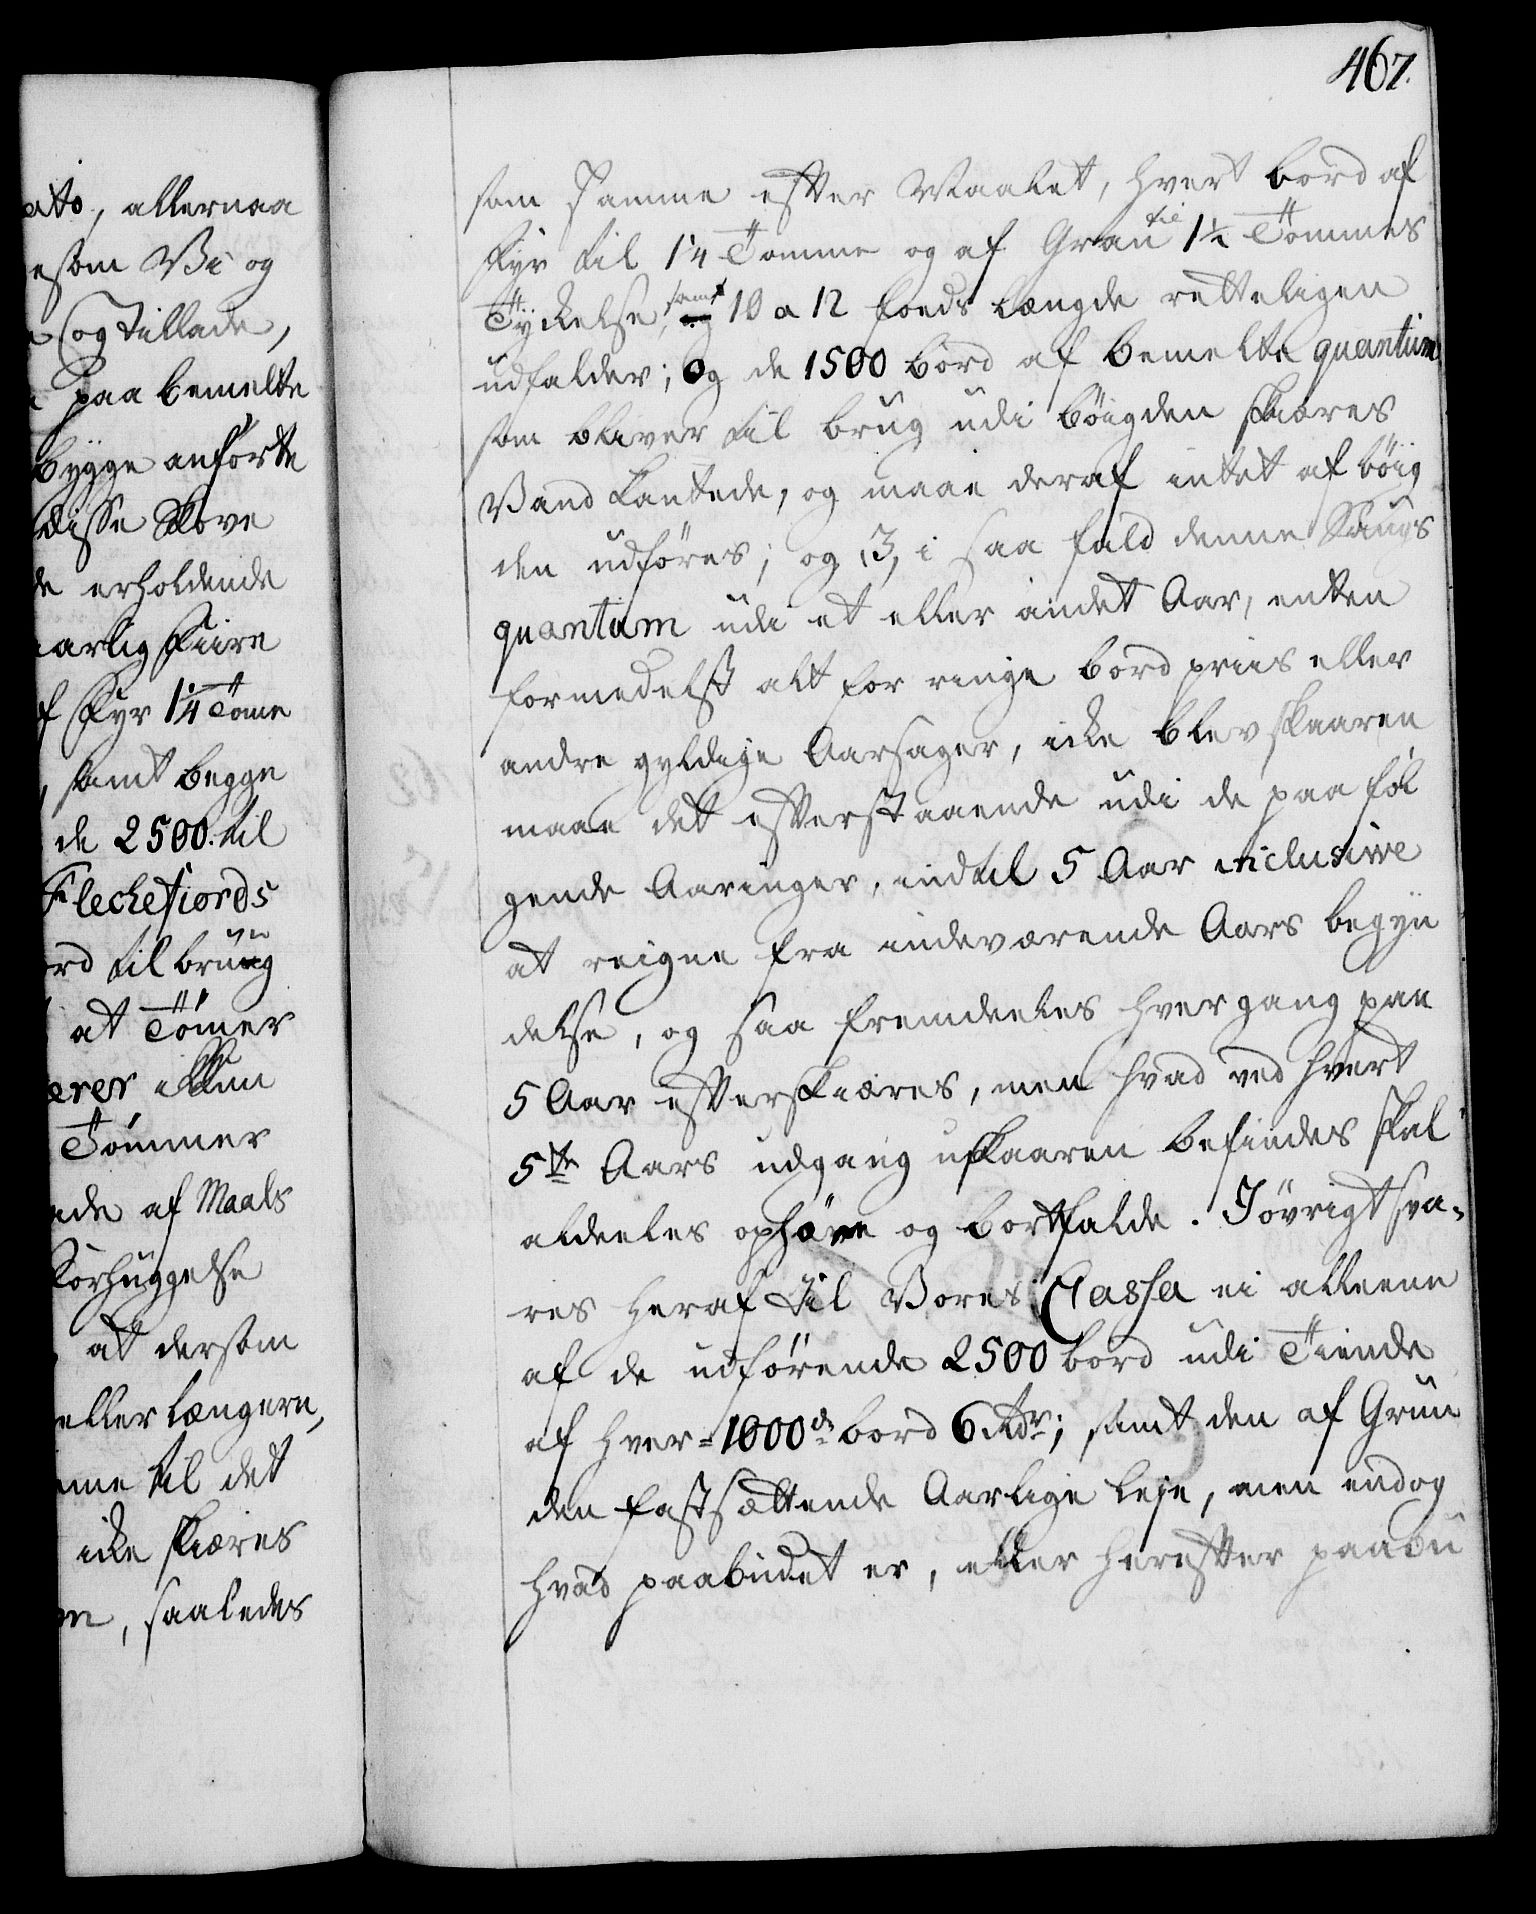 ato, allernaa
esom Vi og
e og tillade,
paa bemelte
bygge anførte
disse Skove
de erholdende
aarlig Fiire
f Fyr 1¼ Tome
, samt begge
de 2500. til
Fleckefiords
ord til bruug
at Tömer
erer ikkun
Tömmer
ade af Maals
Forhuggelse
at dersom
eller længere,
me til det
icke skiæres
en, saaledes
467.
som samme efter Maalet, hvert bord af
Fyr til 1¼ Tomme og af Gran til 1½ Tommes
Tyckelse, samt 10 a 12 foeds Længde retteligen
udfalder; Og de 1500 bord af bemelte quantum
som bliver til brug udi bøigden skiæres
Vand kantede, og maae deraf intet af bøig
den udføres; og 3, i saa fald denne Saugs
quantum udi et eller andet Aar, enten
formedelst alt for ringe bord priis eller
andre gyldige Aarsager, icke blev skaaren
maae det efterstaaende udi de paaføl
gende Aaringer, indtil 5 Aar inclusive
at reigne fra indeværende Aars begyn
delse, og saa fremdeeles hver gang paa
5 Aar efterskiæres, men hvad ved hvert
5te Aars udgang uskaaren befindes skal
aldeeles ophæve og bortfalde. Iøvrigt sva-
res heraf til Vores Cassa ei alleene
af de udførende 2500 bord udi Tiende
af hver 1000de bord 6 Rdr; samt den af Grun
den fastsættende Aarlige leje, men endog
hvad paabudet er, eller herefter paabu